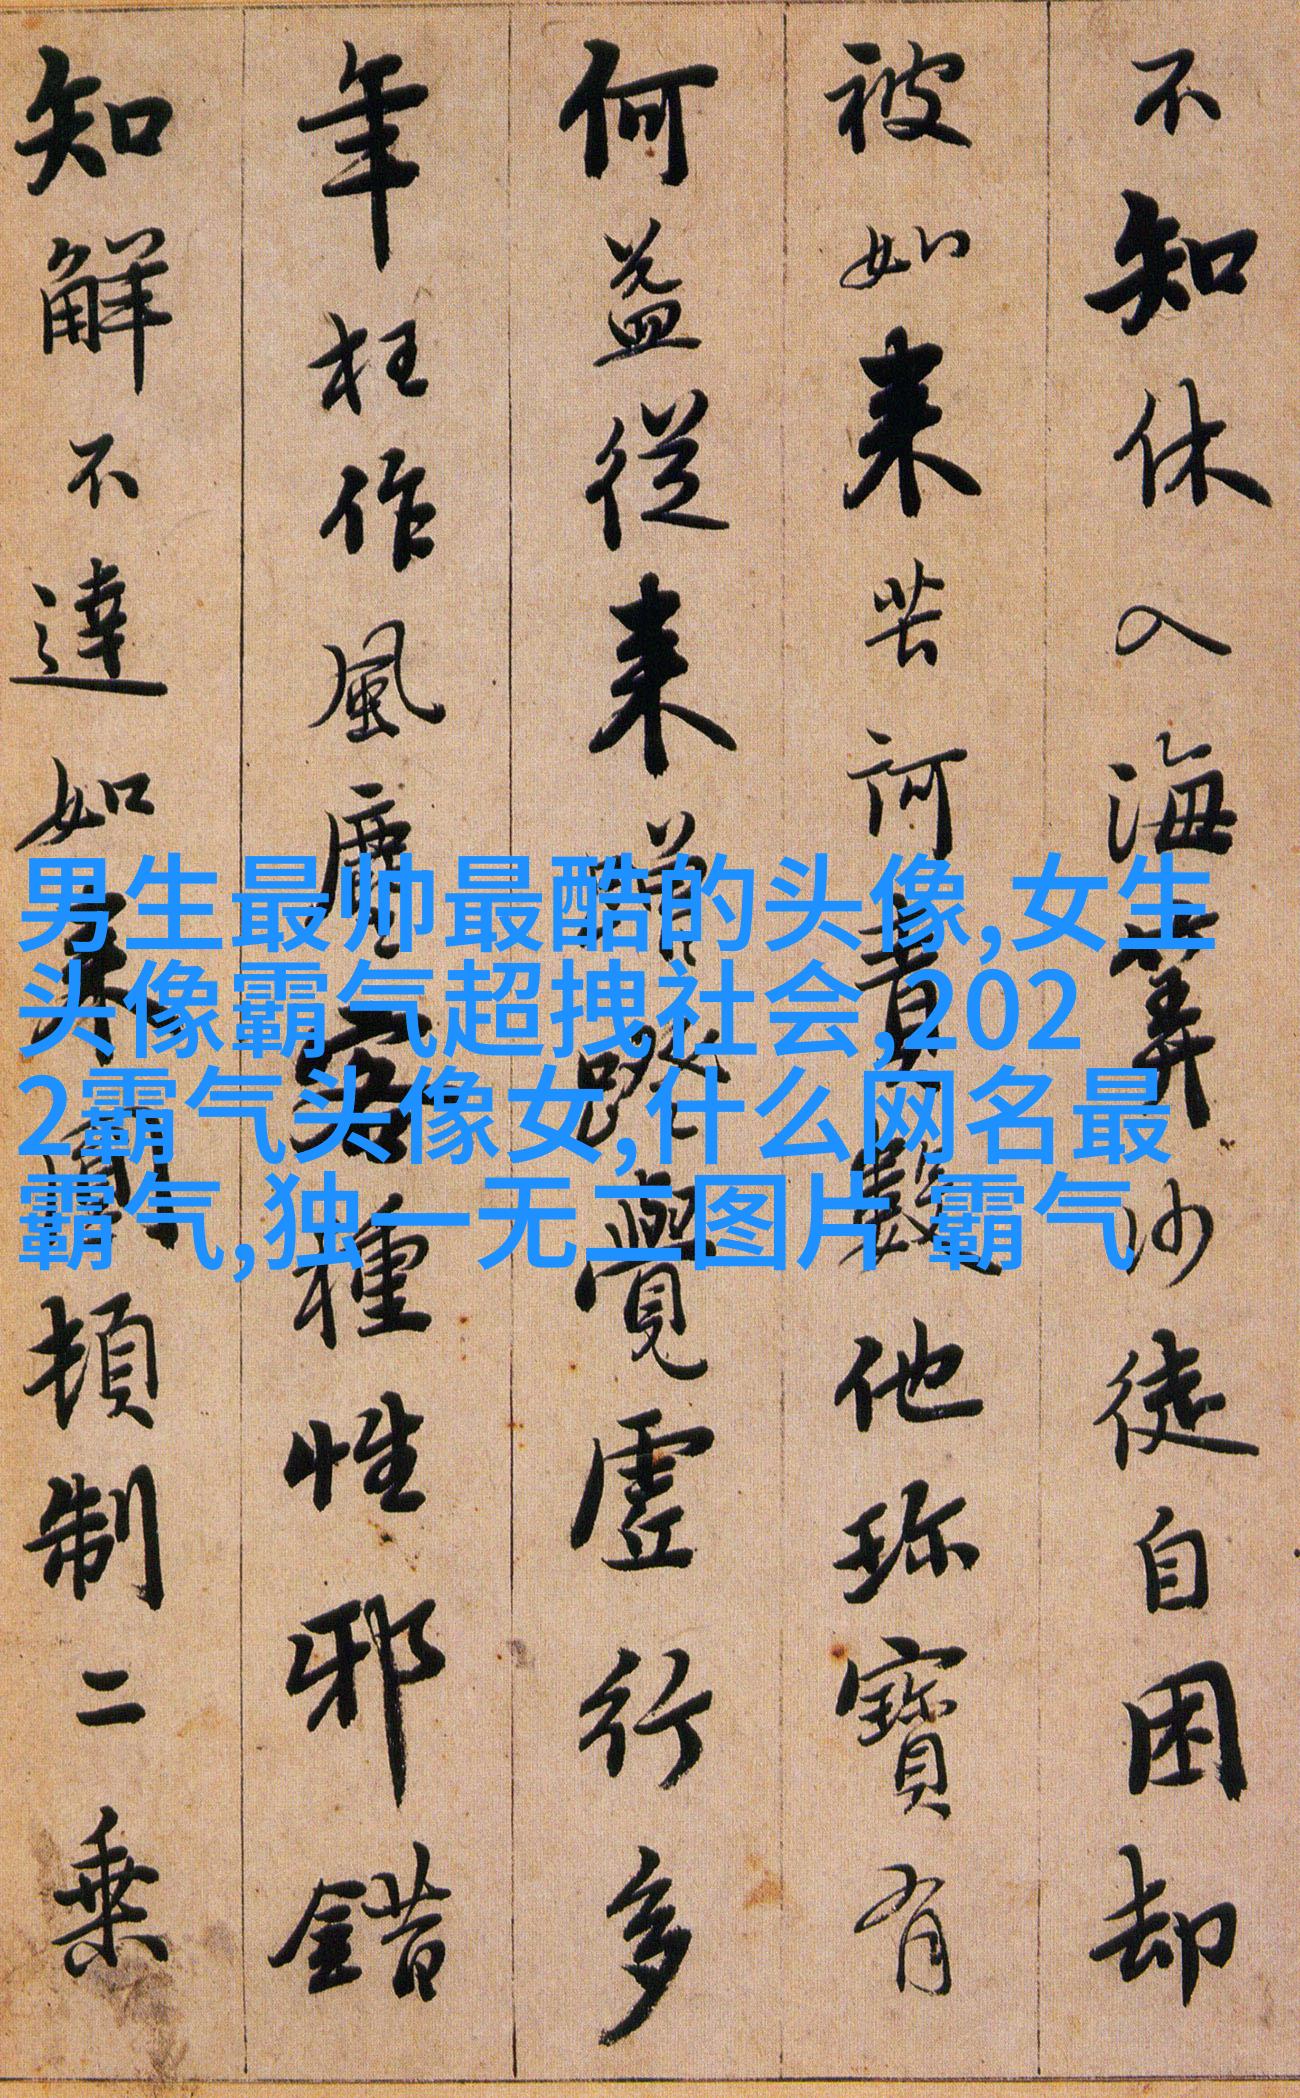 不知休入海筭沙徒自困却
被如来苦訶責數他珎寶有
何益從来蹭蹬覺虛行多
年枉作風塵客種性邪錯
知解不達如来圓頓制二乗
男生最帅最酷的头像,女生
头像霸气超拽社会,202
2霸气头像女,什么网名最
霸气,独一无二图片 霸气